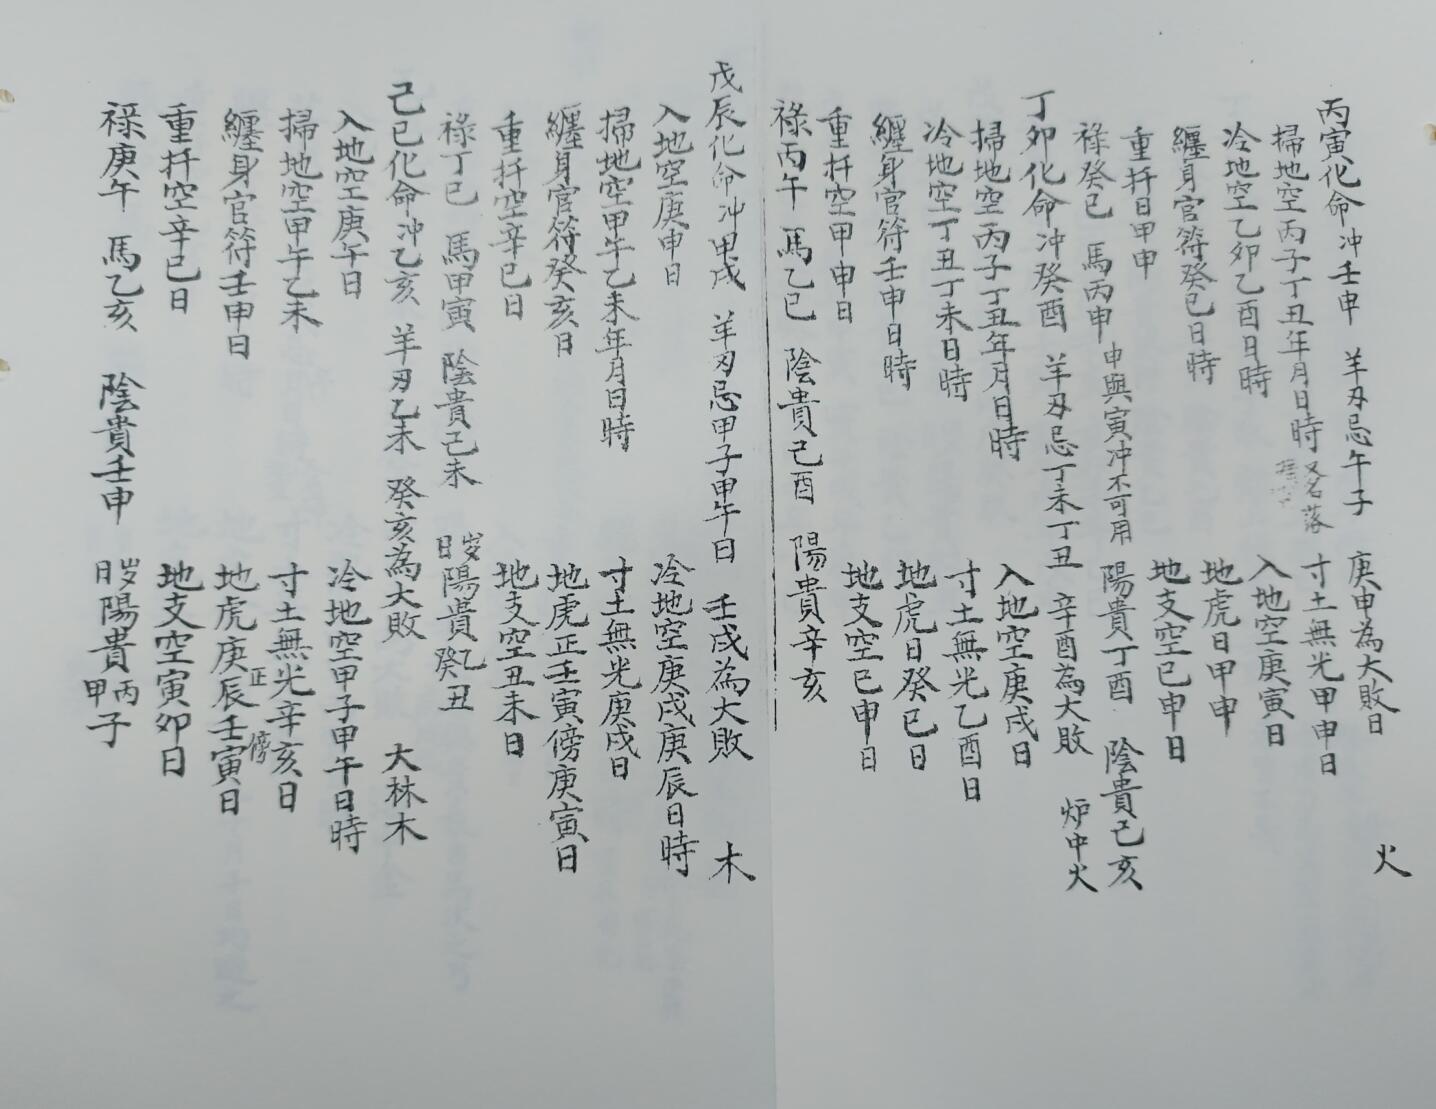 丙寅化命冲壬申 羊刃忌午子 庚申為大敗日 火
掃地空丙子丁丑年月日時 又名落 寸土無光甲申日
冷地空乙卯乙酉日時 入地空庚寅日
纏身官符癸巳日時 地虎日甲申
重扦日甲申 地支空巳申日
祿癸巳 馬丙申 申與寅冲不可用 陽貴丁酉 陰貴己亥
丁卯化命冲癸酉 羊刃忌丁未丁丑 辛酉為大敗 炉中火
掃地空丙子丁丑年月日時 入地空庚戌日
冷地空丁丑丁未日時 寸土無光乙酉日
纏身官符壬申日時 地虎日癸巳日
重扦空甲申日 地支空巳申日
祿丙午 馬乙巳 陰貴己酉 陽貴辛亥
戊辰化命冲甲戌 羊刃忌甲子甲午日 壬戌為大敗 木
入地空庚申日 冷地空庚戌庚辰日時
掃地空甲午乙未年月日時 寸土無光庚戌日
纏身官符癸亥日 地虎正壬寅傍庚寅日
重扦空辛巳日 地支空丑未日
祿丁巳 馬甲寅 陰貴己未 歲日陽貴乙癸丑
己巳化命冲乙亥 羊刃乙未 癸亥為大敗 大林木
入地空庚午日 冷地空甲子甲午日時
掃地空甲午乙未 寸土無光辛亥日
纏身官符壬申日 地虎庚辰正壬寅傍日
重扦空辛巳日 地支空寅卯日
祿庚午 馬乙亥 陰貴壬申 歲日陽貴丙甲子